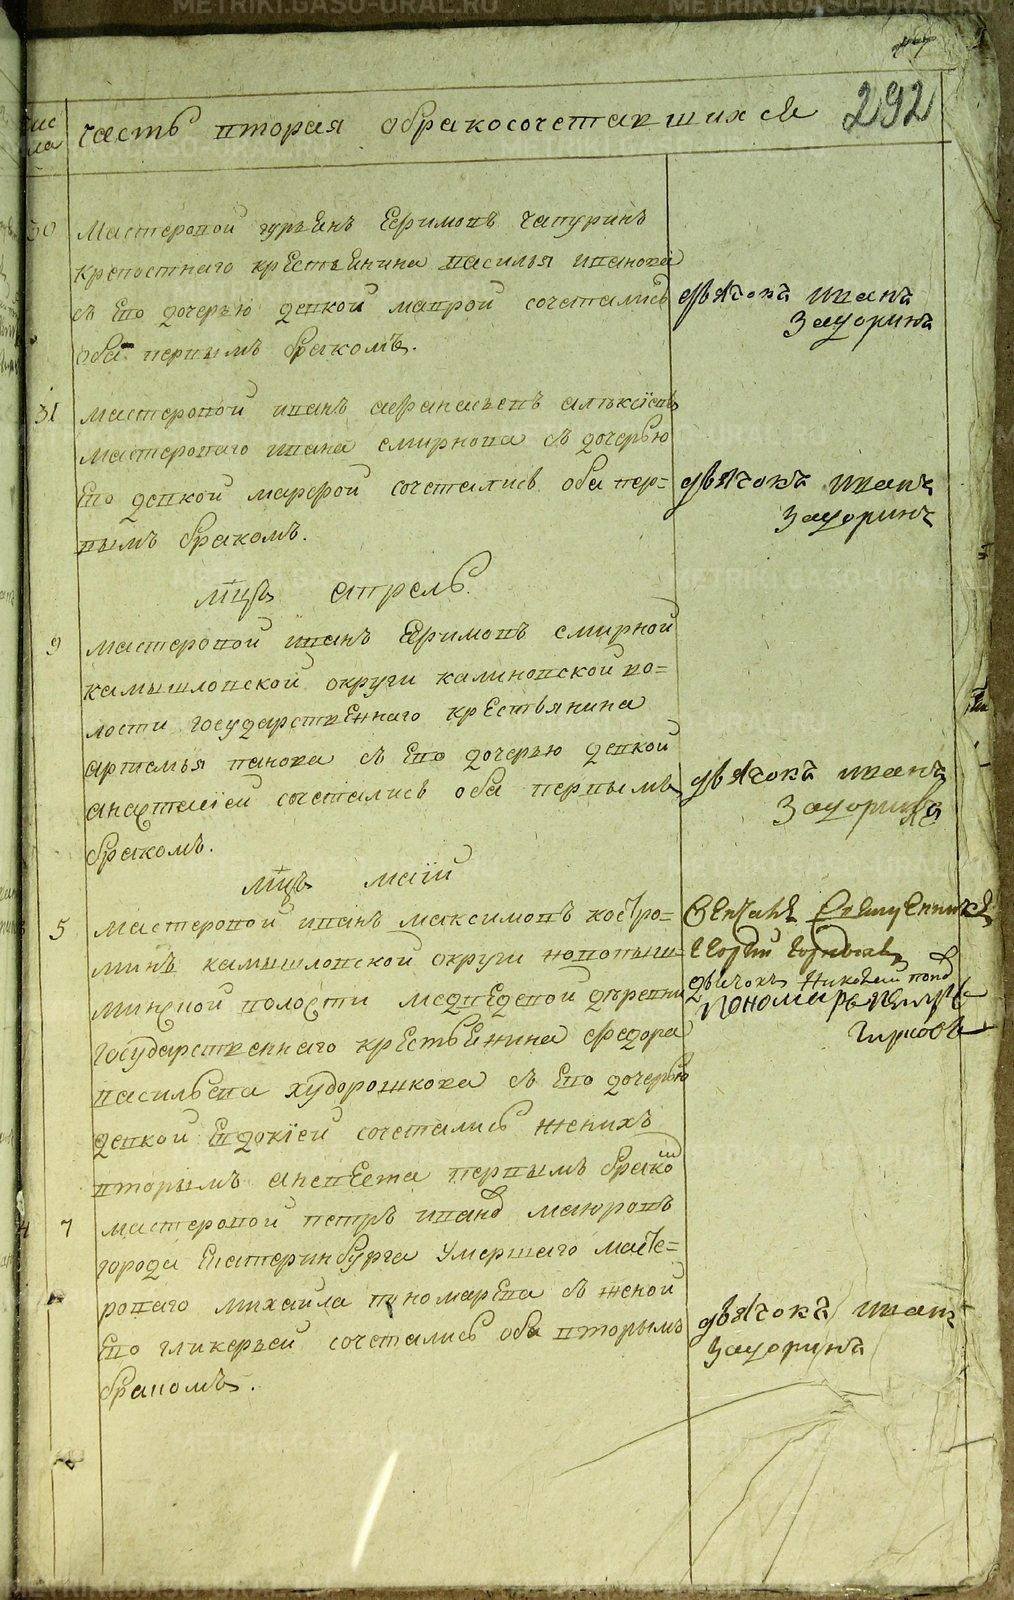 METRIKI.GASO-URAL.RU
292
Числа
часть вторая обракосочетавшихся
30
Мастеровой гурьянъ Ефимовъ Чапуринъ
крепостнаго крестьенина василья иванова
съ его дочерью девкой маврой сочетались
оба первымъ бракомъ.
дьячокъ иванъ
Зауоринъ
31
мастеровой иванъ афанасьевъ
мастероваго ивана смирнова съ дочерью
его девкой марфой сочетались оба пер=
вымъ бракомъ.
дьячокъ иванъ
Зауоринъ
мцъ апрель
9
мастеровой иванъ Ефимовъ смирной
камышловской округи калиновской во=
лости государственнаго крестьянина
артемья панова съ его дочерью девкой
анастасiей сочетались оба первымъ
бракомъ.
дьячокъ иванъ
Зауоринъ
мцъ маiй
5
мастеровой иванъ максимовъ костро=
минъ камышловской округи новопыш=
минской волости медведевой деревни
государственнаго крестьенина федора
васильева худорошкова съ его дочерью
девкой евдокiей сочетались женихъ
вторымъ а невеста первымъ бракомъ
Венчалъ Священникъ
дьячокъ Николай попов
пономарь петръ
7
мастеровой петръ иванов маюровъ
города екатеринбурга умершаго масте=
роваго михаила пономарева съ женой
его гликерьей сочетались оба вторымъ
бракомъ.
дьячокъ иванъ
Зауоринъ